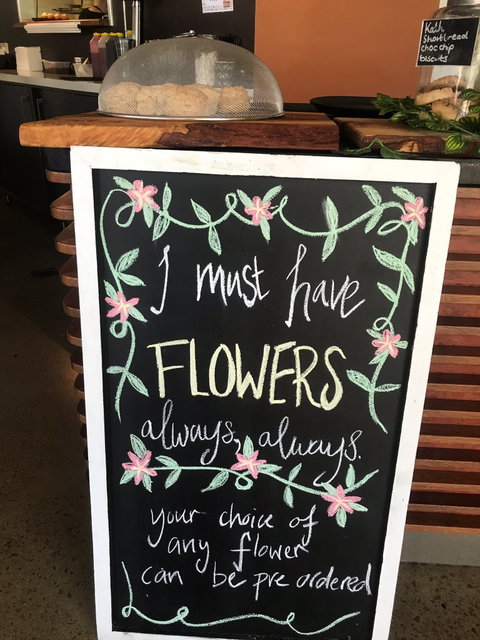 Kath
Shortbread
choc chip
biscuits
I must have
FLOWERS
always, always.
your choice of
any flower
can be pre ordered